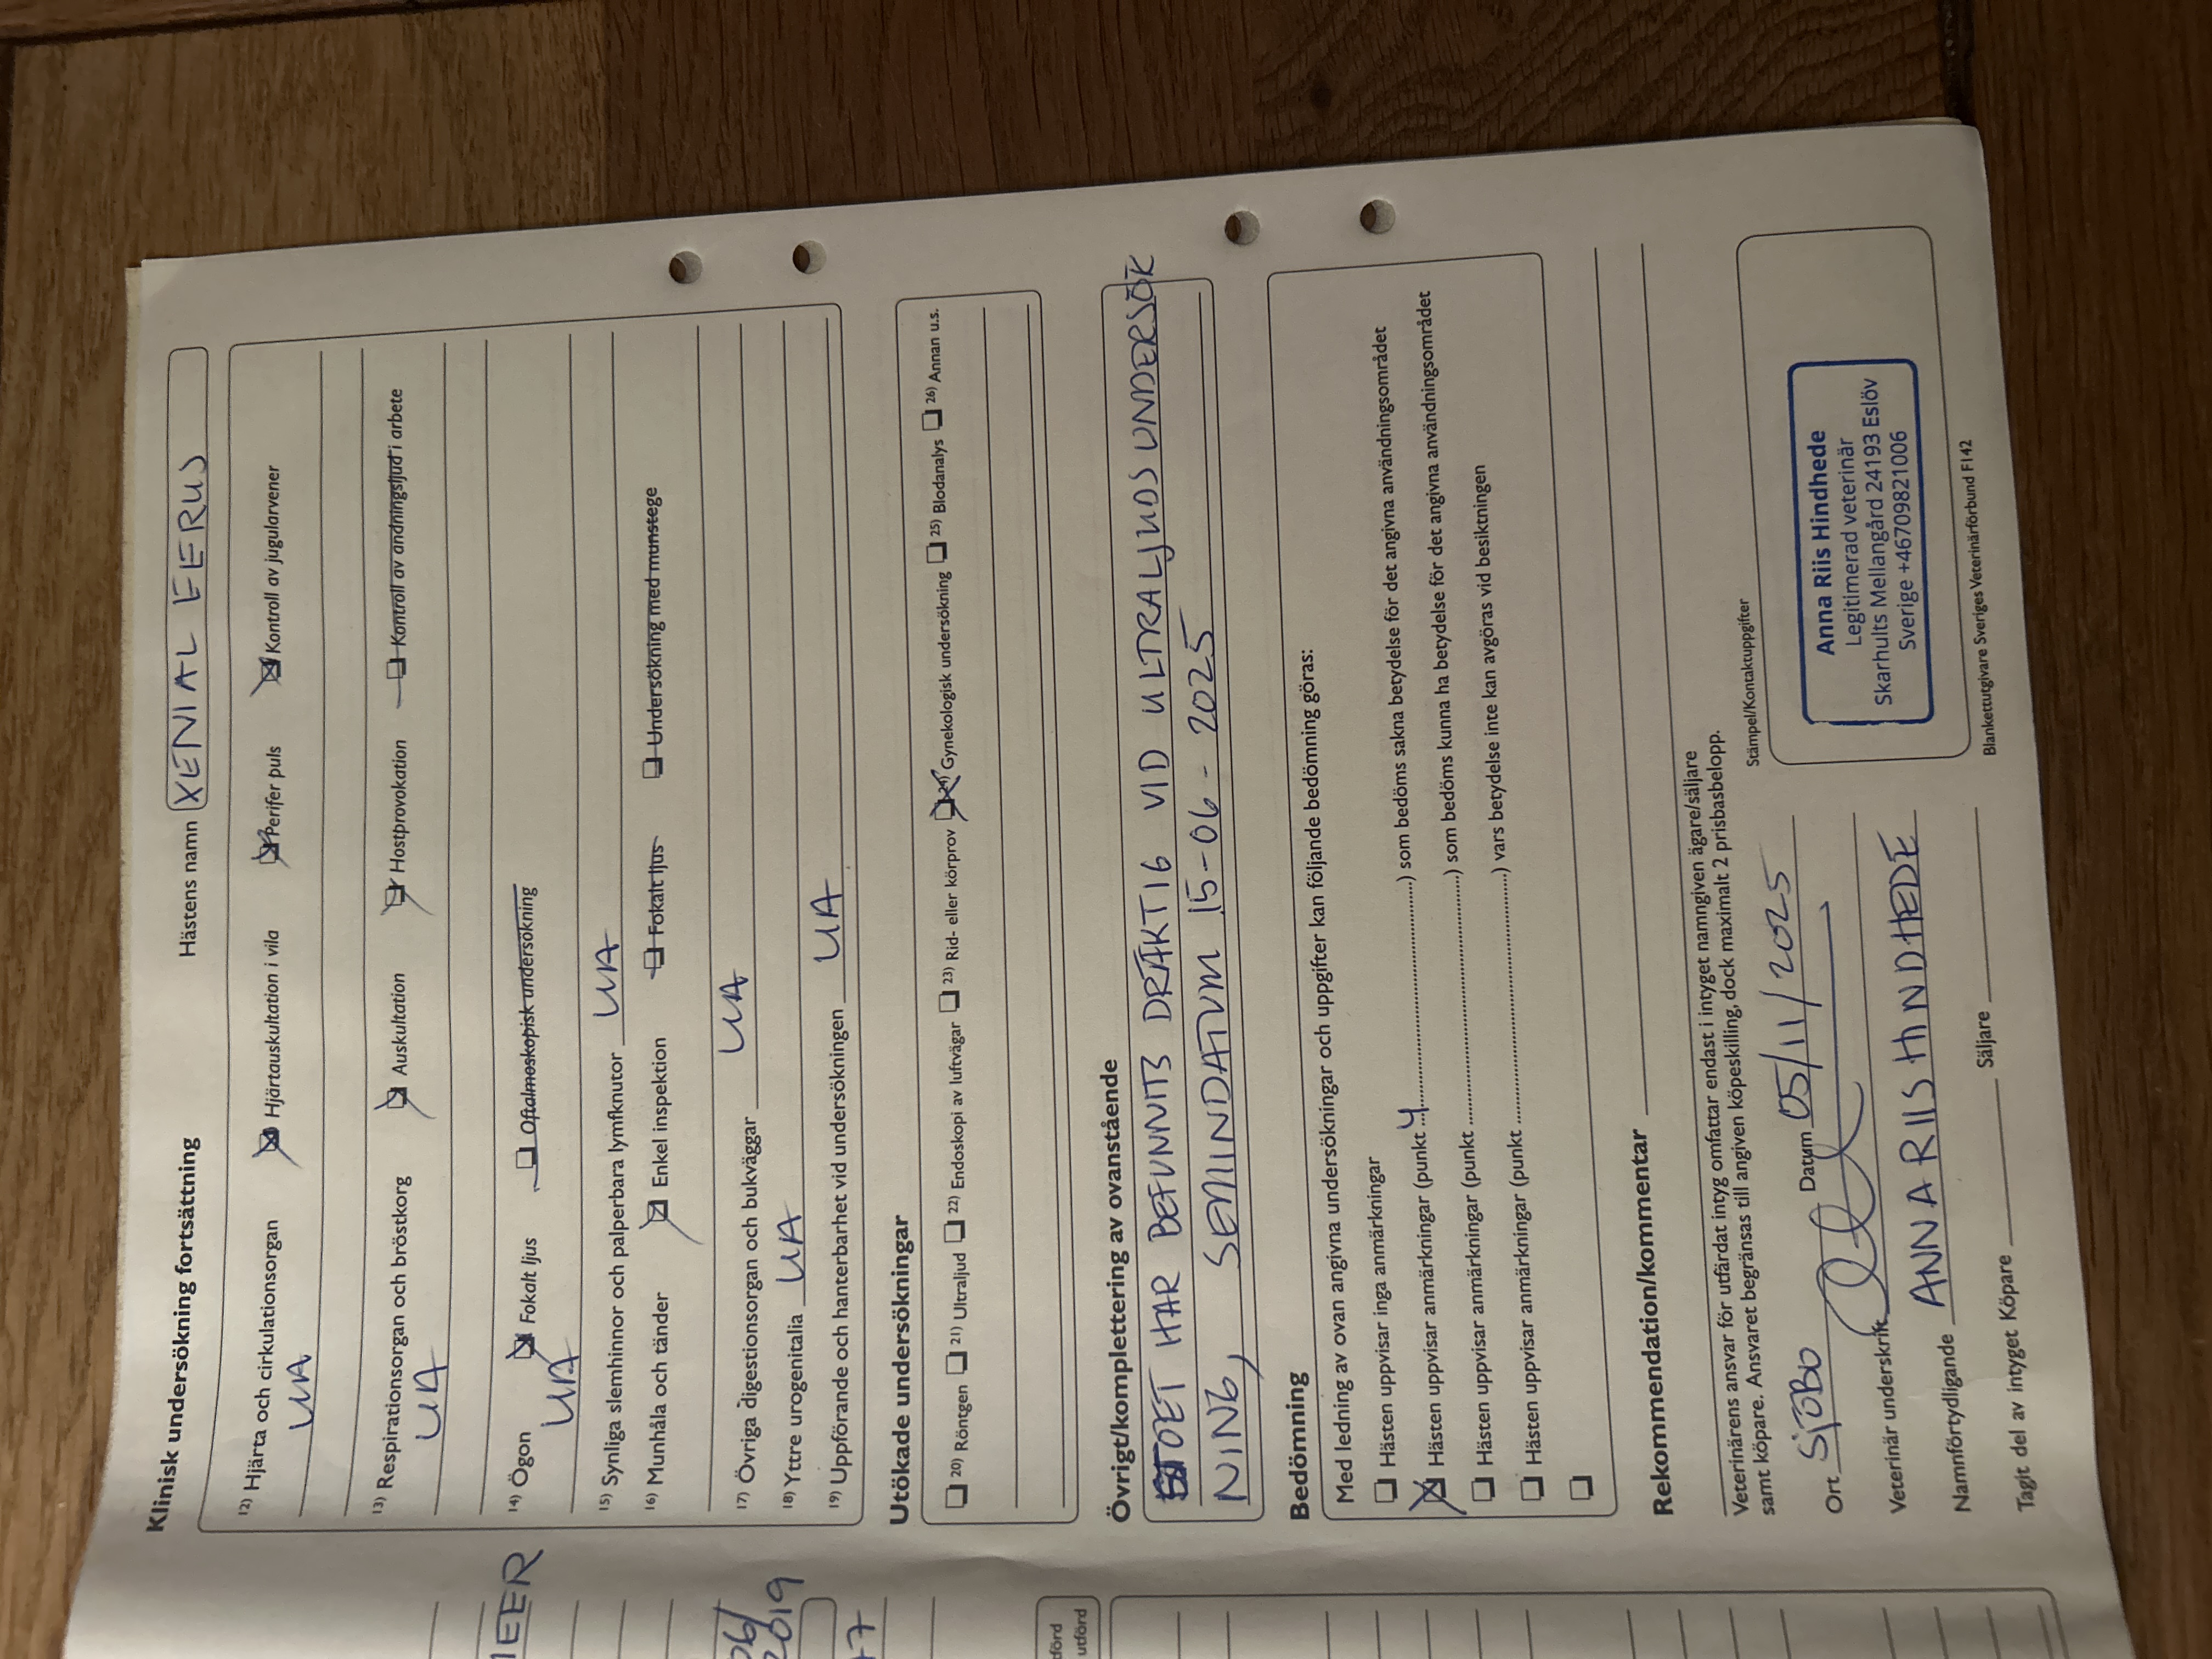 Klinisk undersökning fortsättning
Hästens namn XENIAL FERUS
12) Hjärta och cirkulationsorgan Hjärtauskultation i vila Perifer puls Kontroll av jugularvener
UA
13) Respirationsorgan och bröstkorg Auskultation Hostprovokation Kontroll av andningsljud i arbete
UA
14) Ögon Fokalt ljus Oftalmoskopisk undersökning
UA
15) Synliga slemhinnor och palperbara lymfknutor UA
16) Munhåla och tänder Enkel inspektion Fokalt ljus Undersökning med munstege
17) Övriga digestionsorgan och bukväggar UA
18) Yttre urogenitalia UA
19) Uppförande och hanterbarhet vid undersökningen UA
Utökade undersökningar
20) Röntgen 21) Ultraljud 22) Endoskopi av luftvägar 23) Rid- eller körprov 24) Gynekologisk undersökning 25) Blodanalys 26) Annan u.s.
Övrigt/komplettering av ovanstående
STOET HAR BEFUNNITS DRÄKTIG VID ULTRALJUDS UNDERSÖK
NING, SEMINDATUM 15-06-2025
Bedömning
Med ledning av ovan angivna undersökningar och uppgifter kan följande bedömning göras:
Hästen uppvisar inga anmärkningar
Hästen uppvisar anmärkningar (punkt 4) som bedöms sakna betydelse för det angivna användningsområdet
Hästen uppvisar anmärkningar (punkt ) som bedöms kunna ha betydelse för det angivna användningsområdet
Hästen uppvisar anmärkningar (punkt ) vars betydelse inte kan avgöras vid besiktningen
Rekommendation/kommentar
Veterinärens ansvar för utfärdat intyg omfattar endast i intyget namngiven ägare/säljare
samt köpare. Ansvaret begränsas till angiven köpeskilling, dock maximalt 2 prisbasbelopp.
Ort SJÖBO Datum 05/11/2025
Stämpel/Kontaktuppgifter
Veterinär underskrift
Namnförtydligande ANNA RIIS HINDHEDE
Anna Riis Hindhede
Legitimerad veterinär
Skarhults Mellangård 24193 Eslöv
Sverige +46709821006
Tagit del av intyget Köpare Säljare
Blankettutgivare Sveriges Veterinärförbund F142
06/
2019
utförd